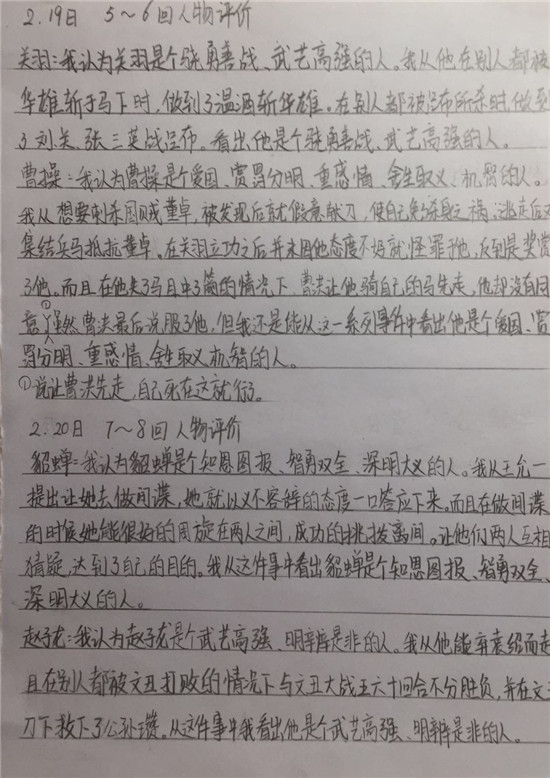 2.19日 5～6回人物评价
关羽:我认为关羽是个骁勇善战、武艺高强的人。我从他在别人都被
华雄斩于马下时,做到了温酒斩华雄。在别人都被吕布所杀时,做到
了刘、关、张三英战吕布。看出他是个骁勇善战、武艺高强的人。
曹操:我认为曹操是个爱国、赏罚分明、重感情、舍生取义、机智的人。
我从想要刺杀国贼董卓,被发现后就假意献刀,使自己免杀身之祸,逃走后又
集结兵马抵抗董卓。在关羽立功之后并未因他态度不好就怪罪于他,反到是奖赏
了他。而且在他失了马且中了箭的情况下,曹洪让他骑自己的马先走,他却没有同
意①,虽然曹洪最后说服了他,但我还是能从这一系列事件中看出他是个爱国、赏
罚分明、重感情、舍生取义机智的人。
①说让曹洪先走,自己死在这就行了。
2.20日 7～8回人物评价
貂蝉:我认为貂蝉是个知恩图报、智勇双全、深明大义的人。我从王允一
提出让她去做间谍,她就以义不容辞的态度一口答应下来。而且在做间谍
的时候她能很好的周旋在两人之间,成功的挑拨离间。让他们两人互相
猜疑,达到了自己的目的。我从这件事中看出貂蝉是个知恩图报、智勇双全、
深明大义的人。
赵子龙:我认为赵子龙是个武艺高强、明辨是非的人。我从他能弃袁绍而走
且在别人都被文丑打败的情况下与文丑大战五六十回合不分胜负,并在文丑
刀下救下了公孙瓒。从这件事中我看出他是个武艺高强、明辨是非的人。